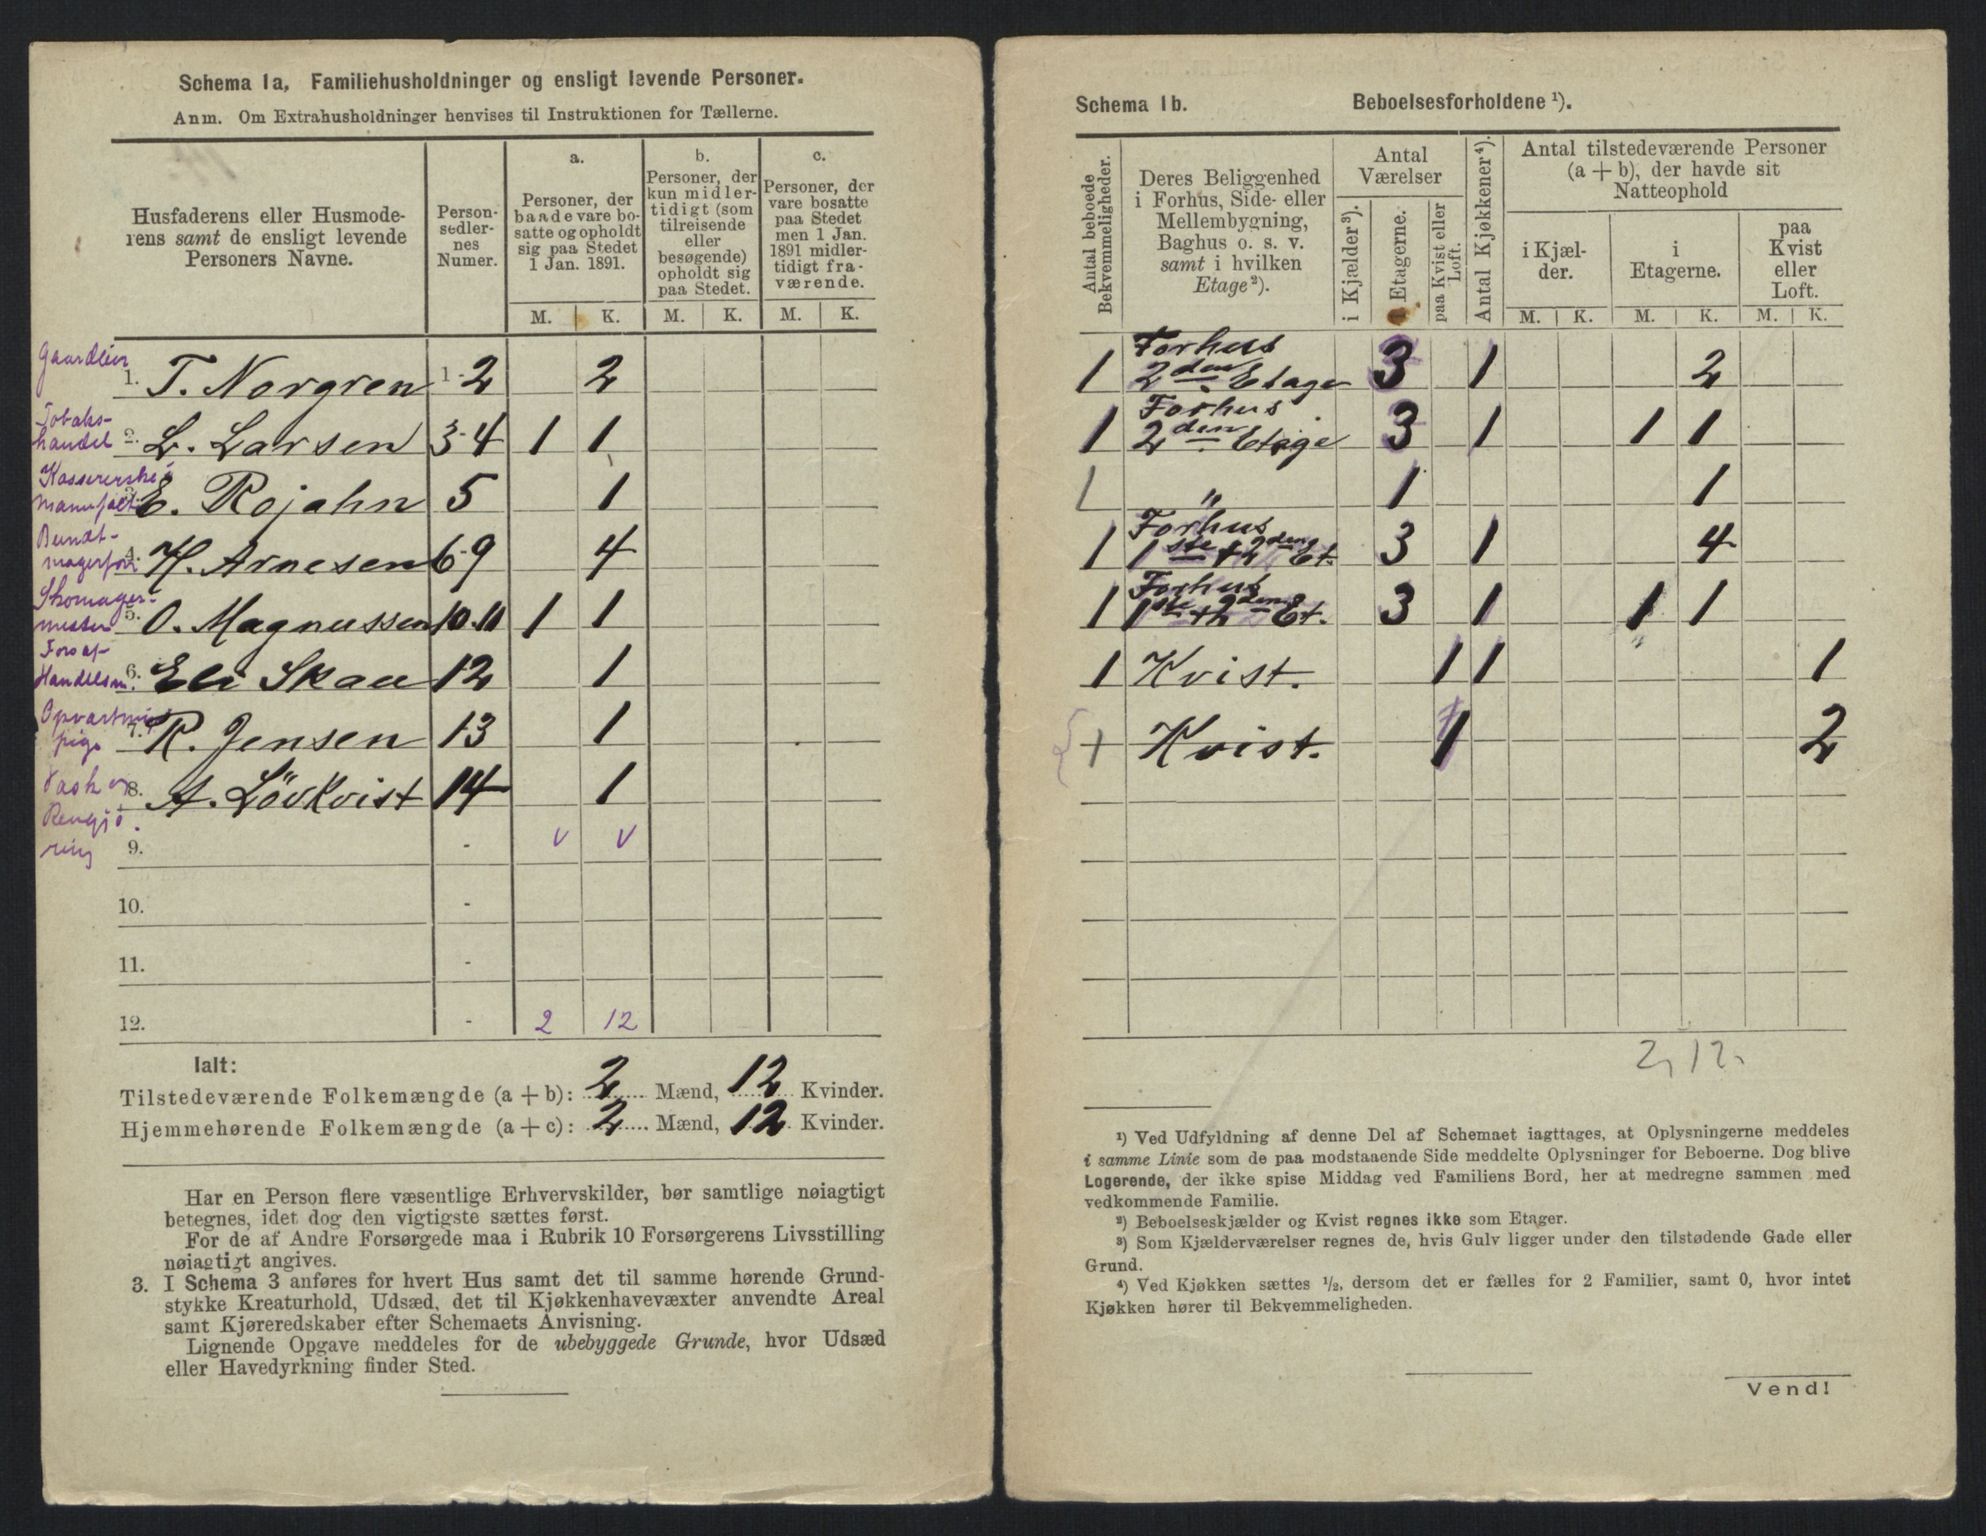 Schema 1a, Familiehusholdninger og ensligt levende Personer.
Anm. Om Extrahusholdninger henvises til Instruktionen for Tællerne.
Husfaderens eller Husmode-
rens samt de ensligt levende
Personers Navne.
Person-
sedler-
nes
Numer.
a.
Personer, der
baade vare bo-
satte og opholdt
sig paa Stedet
1 Jan. 1891.
b.
Personer, der
kun midler-
tidigt (som
tilreisende
eller
besøgende)
opholdt sig
paa Stedet.
c.
Personer, der
vare bosatte
paa Stedet
men 1 Jan.
1891 midler-
tidigt fra-
værende.
M. K. M. K. M. K.
Gaardeier
1. T. Norgren 1-2 2
Tobaks-
handel
2. L. Larsen 3-4 1 1
3. E. Rojahn 5 1
Bundt-
4. H. Arnesen 6-9 4
Skomager-
mester
5. O. Magnussen 10-11 1 1
Fors af
Handelsm.
6. Eli Skau 12 1
pige
7. R. Jensen 13 1
Vask og
8. A. Lövkvist 14 1
Rengjö
ring
9. - v v
10. -
11. -
12. - 2 12
Ialt:
Tilstedeværende Folkemængde (a + b): 2 Mænd, 12 Kvinder.
Hjemmehørende Folkemængde (a + c): 2 Mænd, 12 Kvinder.
Har en Person flere væsentlige Erhvervskilder, bør samtlige nøiagtigt
betegnes, idet dog den vigtigste sættes først.
For de af Andre Forsørgede maa i Rubrik 10 Forsørgerens Livsstilling
nøiagtigt angives.
3. I Schema 3 anføres for hvert Hus samt det til samme hørende Grund-
stykke Kreaturhold, Udsæd, det til Kjøkkenhavevæxter anvendte Areal
samt Kjøreredskaber efter Schemaets Anvisning.
Lignende Opgave meddeles for de ubebyggede Grunde, hvor Udsæd
eller Havedyrkning finder Sted.
Schema 1b. Beboelsesforholdene ¹).
Antal beboede
Bekvemmeligheder.
Deres Beliggenhed
i Forhus, Side- eller
Mellembygning,
Baghus o. s. v.
samt i hvilken
Etage²).
Antal
Værelser
i Kjælder³).
i Etagerne.
paa Kvist eller
Loft.
Antal Kjøkkener⁴).
Antal tilstedeværende Personer
(a + b), der havde sit
Natteophold
i Kjæl-
der.
i
Etagerne.
paa
Kvist
eller
Loft.
M. K. M. K. M. K.
Forhus
1 2den Etage 3 1 2
Forhus
1 2den Etage 3 1 1 1
1 " 1 1
Forhus
1 1ste + 2den Et. 3 1 4
Forhus
1 1ste + 2den Et. 3 1 1 1
1 Kvist. 1 1 1
1 Kvist. 1 2
2, 12.
¹) Ved Udfyldning af denne Del af Schemaet iagttages, at Oplysningerne meddeles
i samme Linie som de paa modstaaende Side meddelte Oplysninger for Beboerne. Dog blive
Logerende, der ikke spise Middag ved Familiens Bord, her at medregne sammen med
vedkommende Familie.
²) Beboelseskjælder og Kvist regnes ikke som Etager.
³) Som Kjælderværelser regnes de, hvis Gulv ligger under den tilstødende Gade eller
Grund.
⁴) Ved Kjøkken sættes ½, dersom det er fælles for 2 Familier, samt 0, hvor intet
Kjøkken hører til Bekvemmeligheden.
Vend!